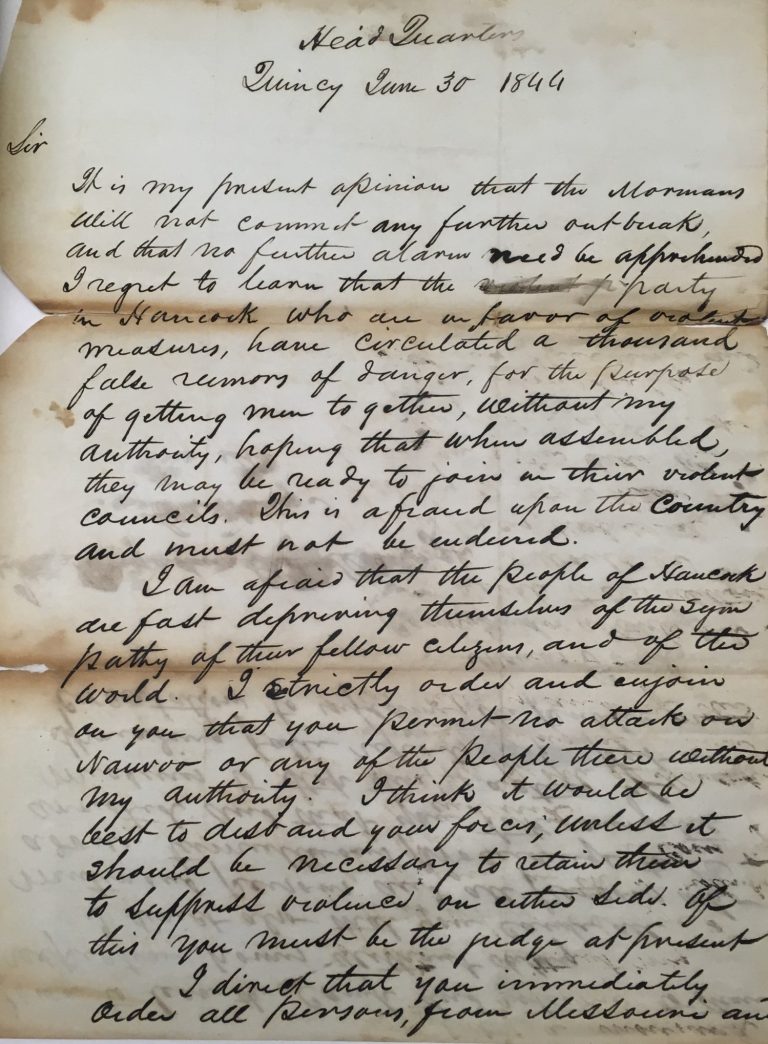 Head Quarters
Quincy June 30 1844
Sir
It is my present opinion that the Mormans
will not commit any further outbreak,
and that no further alarm need be apprehended
I regret to learn that the party
in Hancock who are in favor of violent
measures, have circulated a thousand
false rumors of danger, for the purpose
of getting men to gether, without my
authority, hoping that when assembled,
they may be ready to join in their violent
councils. This is a fraud upon the Country
and must not be endured.
I am afraid that the People of Hancock
are fast depriving themselves of the sym
pathy of their fellow citizens, and of the
world. I strictly order and enjoin
on you that you permit no attack on
Nauvoo or any of the People there without
my authority. I think it would be
best to disband your forces, unless it
should be necessary to retain them
to suppress violence on either side. Of
this you must be the judge at present
I direct that you immediately
Order all Persons, from Missouri and